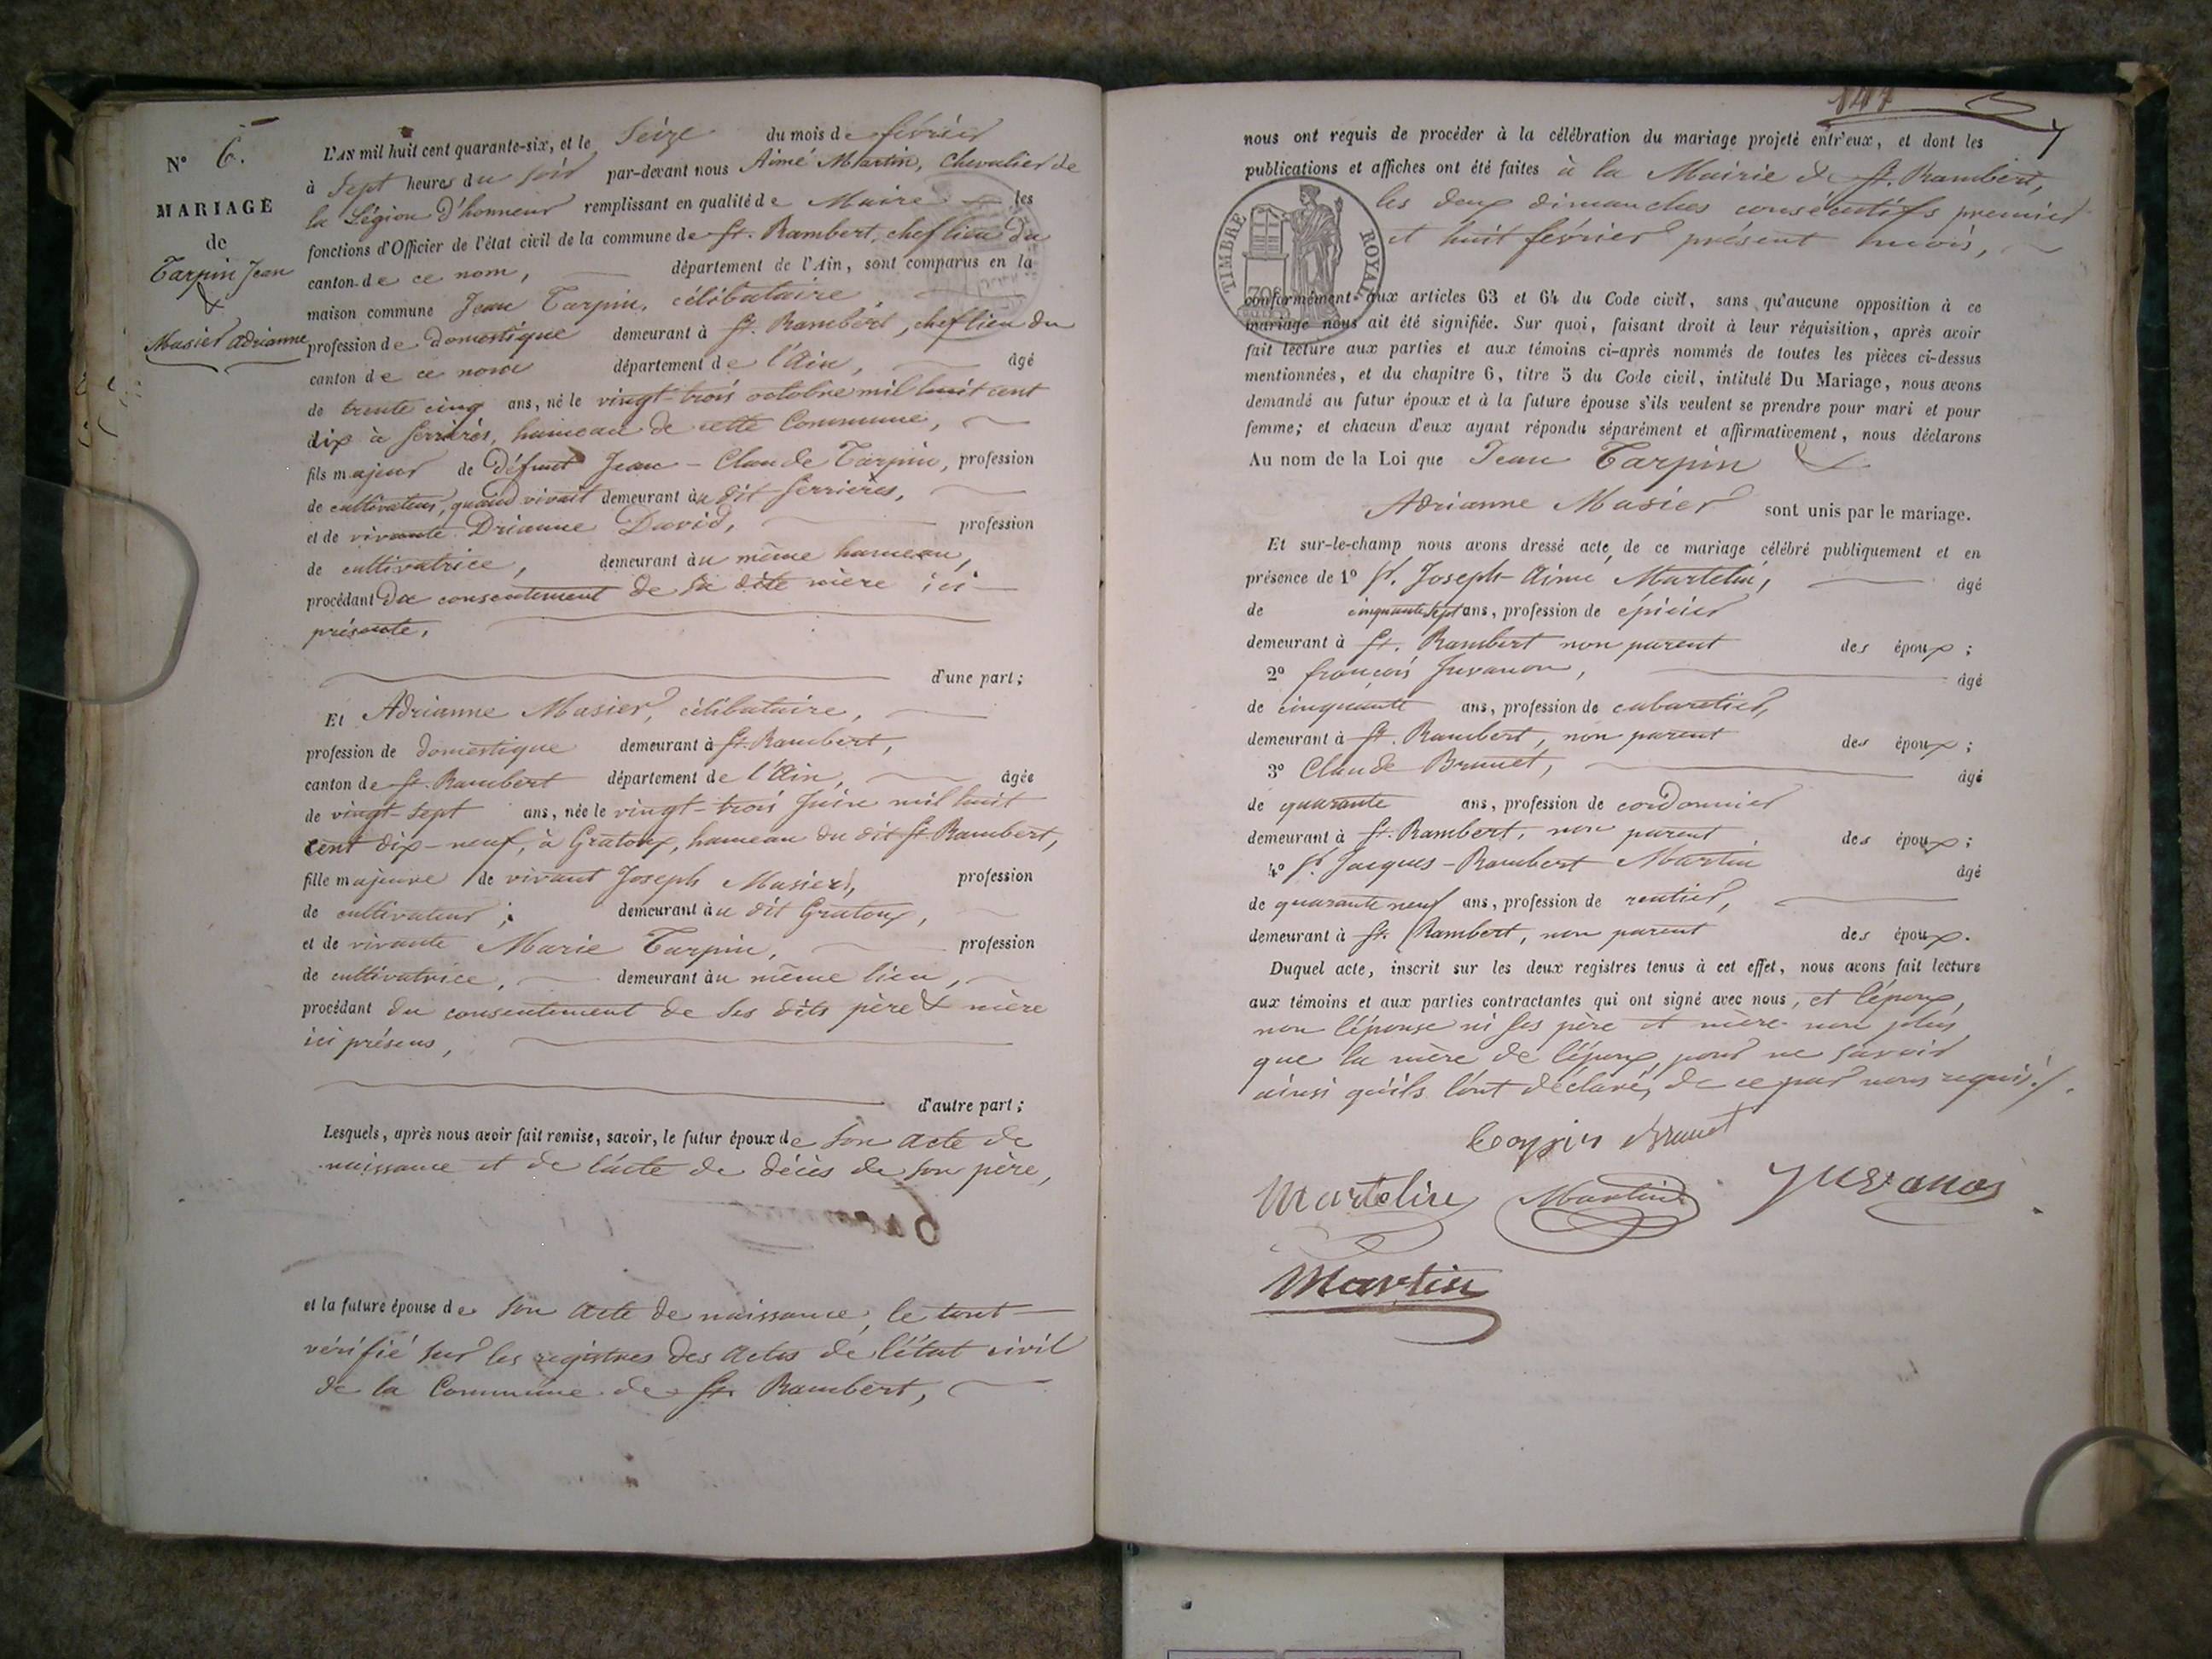 N° 6.
MARIAGE
de
Tarpin Jean
&
Masier Adrianne
L'AN mil huit cent quarante-six, et le Seize du mois de février
à Sept heures du soir par-devant nous Aimé Martin, Chevalier de
la Légion d'honneur remplissant en qualité de Maire les
fonctions d'Officier de l'état civil de la commune de St. Rambert, chef lieu du
canton de ce nom, département de l'Ain, sont comparus en la
maison commune Jean Tarpin, célibataire,
profession de domestique demeurant à St. Rambert, chef lieu du
canton de ce nom département de l'Ain, âgé
de trente cinq ans, né le vingt-trois octobre mil huit cent
dix à Serrières, hameau de cette Commune,
fils majeur de Défunt Jean-Claude Tarpin, profession
de cultivateur, quand vivait demeurant au dit Serrières,
et de vivante Drianne David, profession
de cultivatrice, demeurant au même hameau,
procédant du consentement de sa dite mère ici
présente,
d'une part;
Et Adrianne Masier, célibataire,
profession de domestique demeurant à St. Rambert,
canton de St. Rambert département de l'Ain, âgée
de vingt-sept ans, née le vingt-trois Juin mil huit
cent dix-neuf, à Gratoux, hameau du dit St. Rambert,
fille majeure de vivant Joseph Masier, profession
de cultivateur, demeurant au dit Gratoux,
et de vivante Marie Tarpin, profession
de cultivatrice, demeurant au même lieu,
procédant du consentement de ses dits père & mère
ici présens,
d'autre part;
Lesquels, après nous avoir fait remise, savoir, le futur époux de son acte de
naissance et de l'acte de décès de son père,
et la future épouse de son acte de naissance, le tout
vérifié sur les registres des actes de l'état civil
de la Commune de St. Rambert,
147
nous ont requis de procéder à la célébration du mariage projeté entr'eux, et dont les
publications et affiches ont été faites à la Mairie de St. Rambert,
les deux dimanches consécutifs premier
et huit février présent mois,
TIMBRE ROYAL
conformément aux articles 63 et 64 du Code civil, sans qu'aucune opposition à ce
mariage nous ait été signifiée. Sur quoi, faisant droit à leur réquisition, après avoir
fait lecture aux parties et aux témoins ci-après nommés de toutes les pièces ci-dessus
mentionnées, et du chapitre 6, titre 5 du Code civil, intitulé Du Mariage, nous avons
demandé au futur époux et à la future épouse s'ils veulent se prendre pour mari et pour
femme; et chacun d'eux ayant répondu séparément et affirmativement, nous déclarons
Au nom de la Loi que Jean Tarpin &
Adrianne Masier sont unis par le mariage.
Et sur-le-champ nous avons dressé acte de ce mariage célébré publiquement et en
présence de 1° Sr. Joseph-Aimé Martelin, âgé
de cinquante sept ans, profession de épicier
demeurant à St. Rambert non parent des époux;
2° françois Juvanon, âgé
de cinquante ans, profession de cabaretier,
demeurant à St. Rambert, non parent des époux;
3° Claude Brunet, âgé
de quarante ans, profession de cordonnier
demeurant à St. Rambert, non parent des époux;
4° Sr. Jacques-Rambert Martin âgé
de quarante neuf ans, profession de rentier,
demeurant à St. Rambert, non parent des époux.
Duquel acte, inscrit sur les deux registres tenus à cet effet, nous avons fait lecture
aux témoins et aux parties contractantes qui ont signé avec nous, et l'époux,
non l'épouse ni ses père et mère non plus
que la mère de l'époux, pour ne savoir
ainsi qu'ils l'ont déclaré, de ce par nous requis./.
Brunet
Martelin Martin Juvanon
Martin